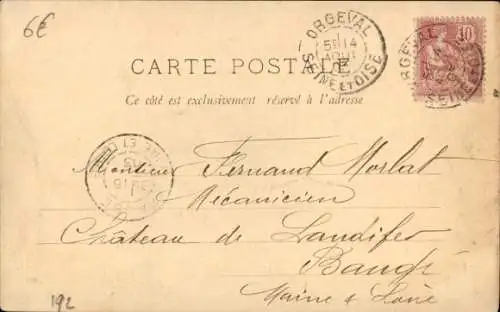 6€
ORGEVAL
5E 14
AOUT
SEINE ET OISE
10
ORGEVAL
SEINE
CARTE POSTALE
Ce côté est exclusivement réservé à l'adresse
Monsieur Fernand Morlat
Mécanicien
Château de Landifer
Baugé
Maine & Loire
192